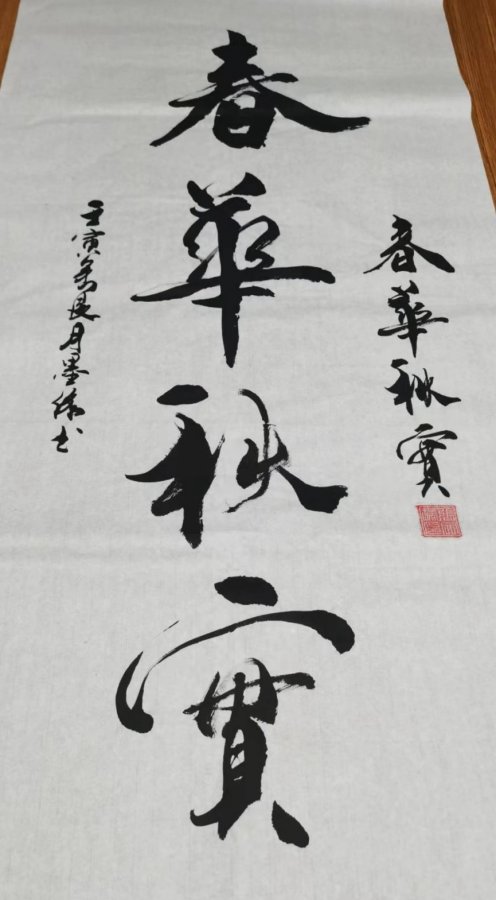 春華秋實
春華秋實
壬寅年良月墨緣书